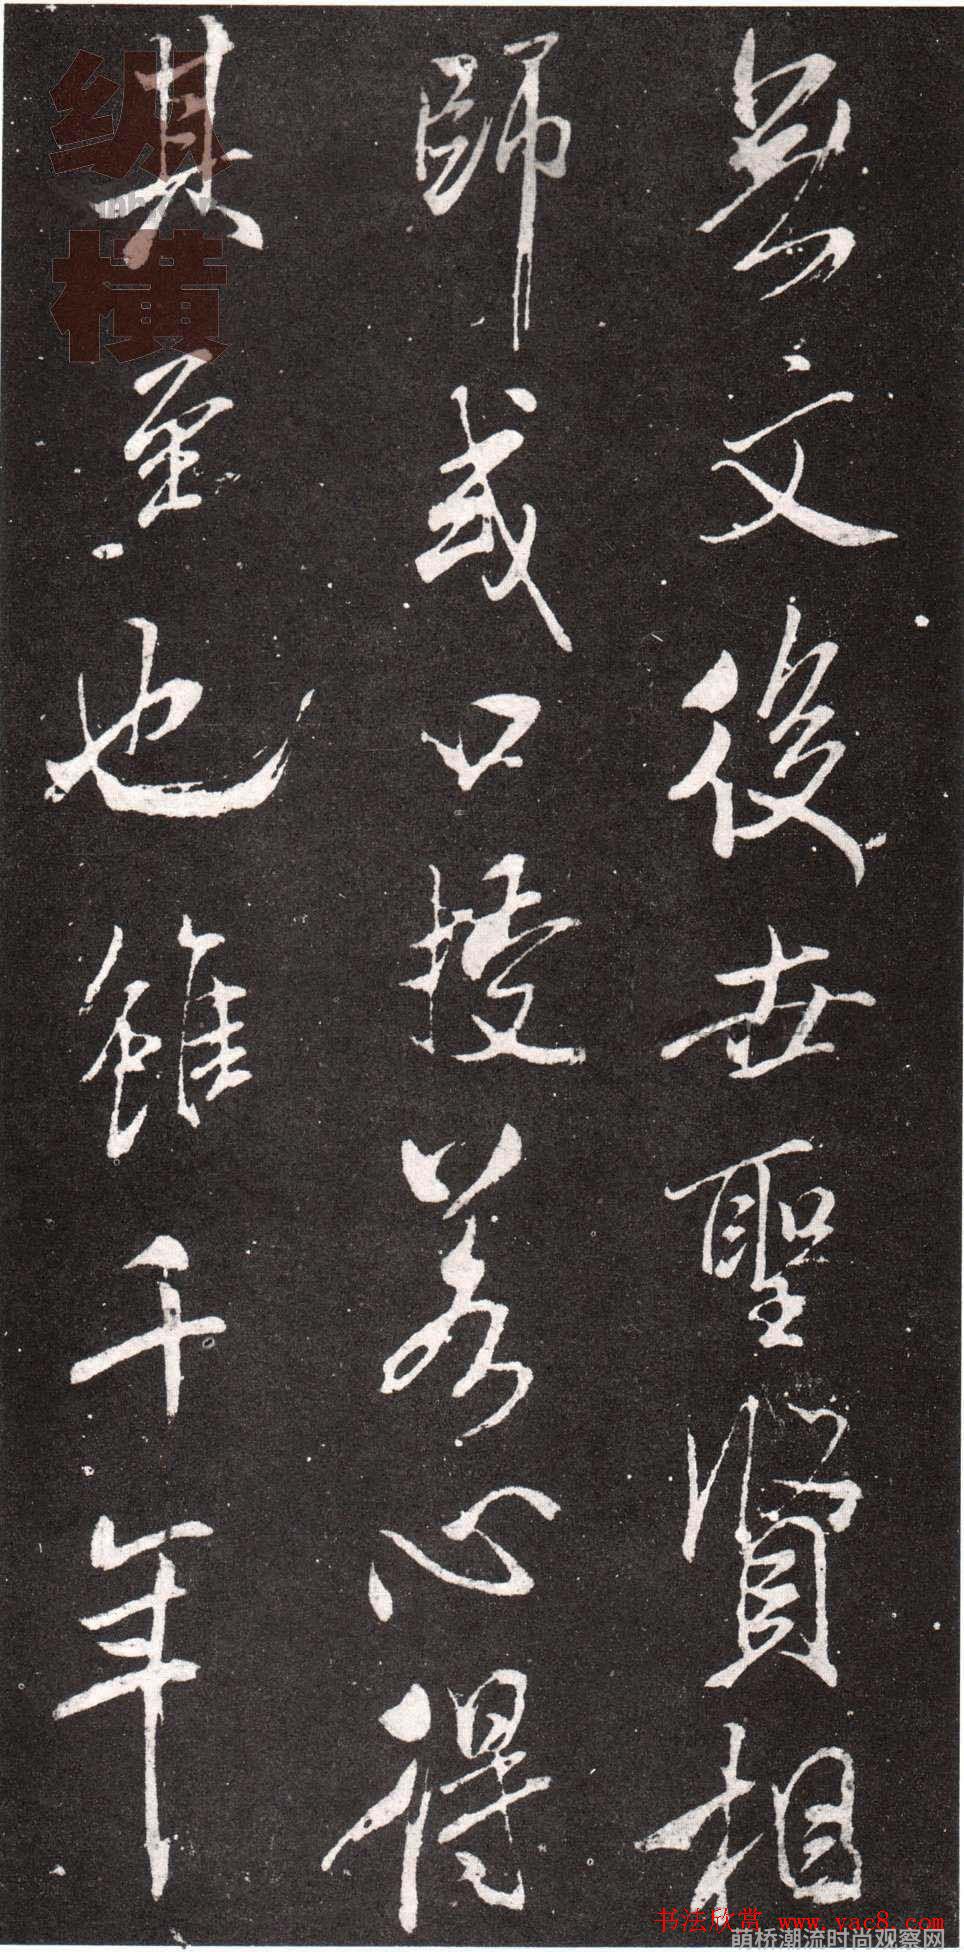 文後世聖賢相
師或口授若心得
其至也雖千年
横
书法欣赏 www.yac8.com
萌桥潮流时尚观察网